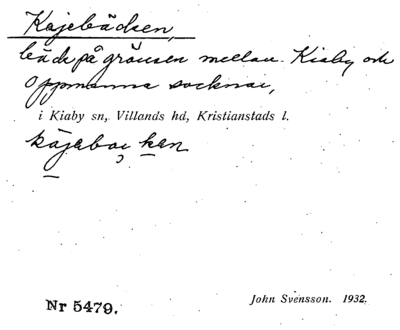 Kajebäcken,
bäck på gränsen mellan Kiaby och
Oppmanna socknar,
i Kiaby sn, Villands hd, Kristianstads l.
kajebac ken
Nr 5479.
John Svensson. 1932.